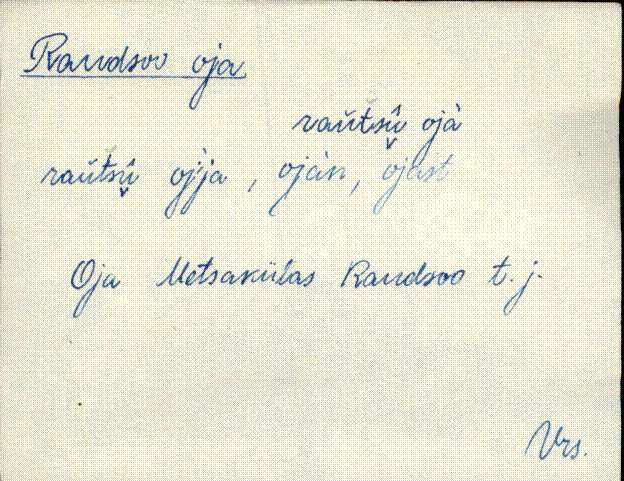 Raudsoo oja
raùtsŭ ojà
raùtsŭ oj̀ja, ojàn, ojast
Oja Metsakülas Raudsoo t. j.
Vrs.